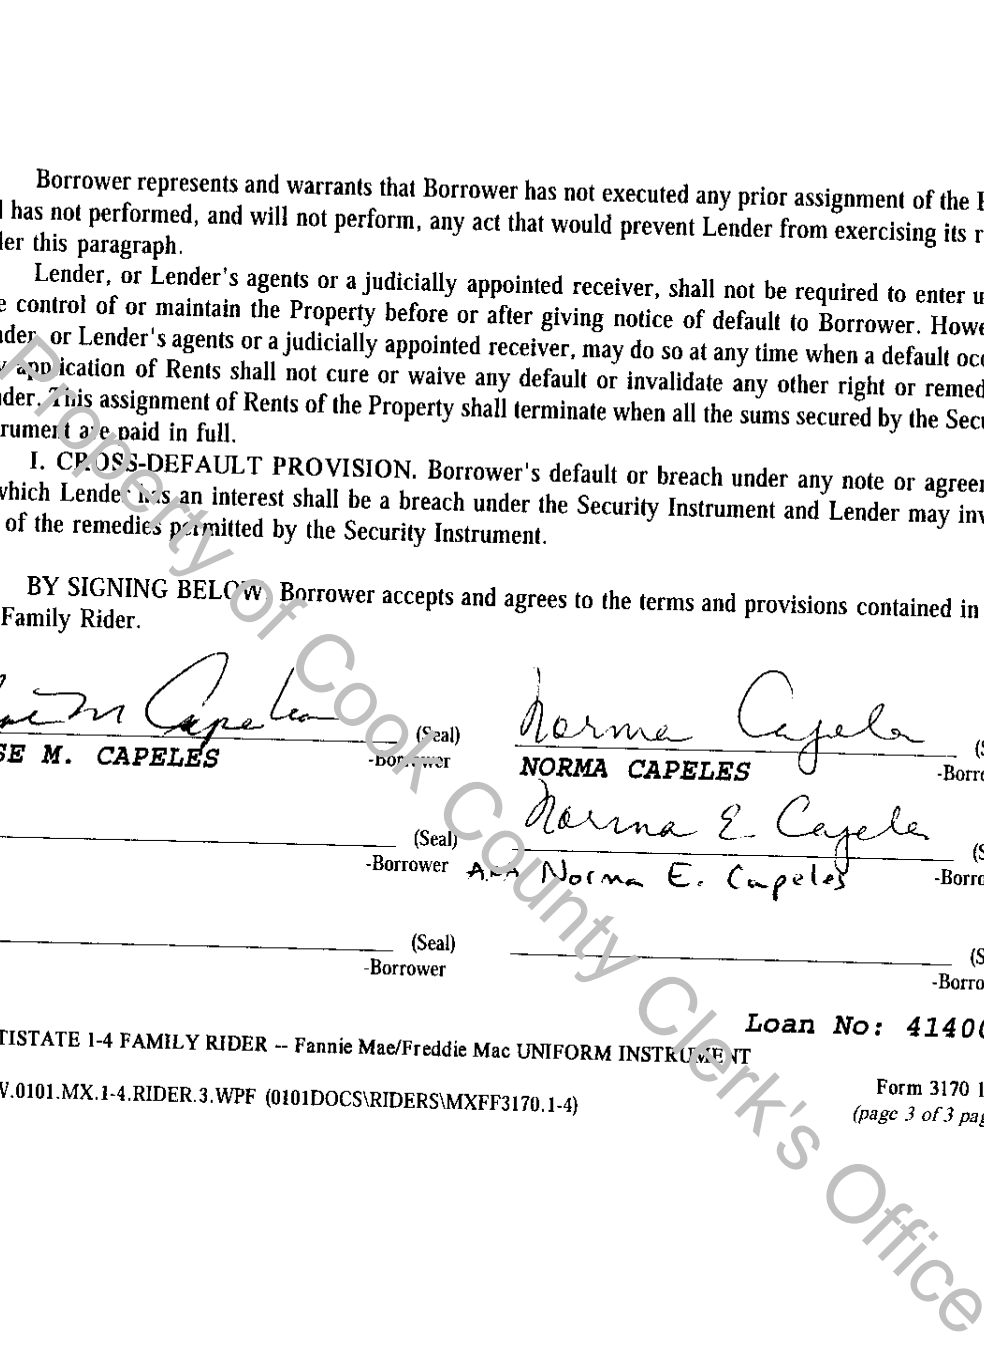 Borrower represents and warrants that Borrower has not executed any prior assignment of the
has not performed, and will not perform, any act that would prevent Lender from exercising its
this paragraph.
Lender, or Lender's agents or a judicially appointed receiver, shall not be required to enter
control of or maintain the Property before or after giving notice of default to Borrower.
or Lender's agents or a judicially appointed receiver, may do so at any time when a default
application of Rents shall not cure or waive any default or invalidate any other right or
This assignment of Rents of the Property shall terminate when all the sums secured by the
are paid in full.
I. CROSS-DEFAULT PROVISION. Borrower's default or breach under any note or
which Lender has an interest shall be a breach under the Security Instrument and Lender may
of the remedies permitted by the Security Instrument.
BY SIGNING BELOW, Borrower accepts and agrees to the terms and provisions contained in
Family Rider.
M Capeles (Seal) Norma Capeles
SE M. CAPELES -Borrower NORMA CAPELES -Borro
Norma E Capeles
(Seal)
-Borrower AKA Norma E. Capeles -Borro
(Seal)
-Borrower -Borro
Loan No: 4140
TISTATE 1-4 FAMILY RIDER -- Fannie Mae/Freddie Mac UNIFORM INSTRUMENT
V.0101.MX.1-4.RIDER.3.WPF (0101DOCS\RIDERS\MXFF3170.1-4) Form 3170
(page 3 of 3 pag
Property of Cook County Clerk's Office